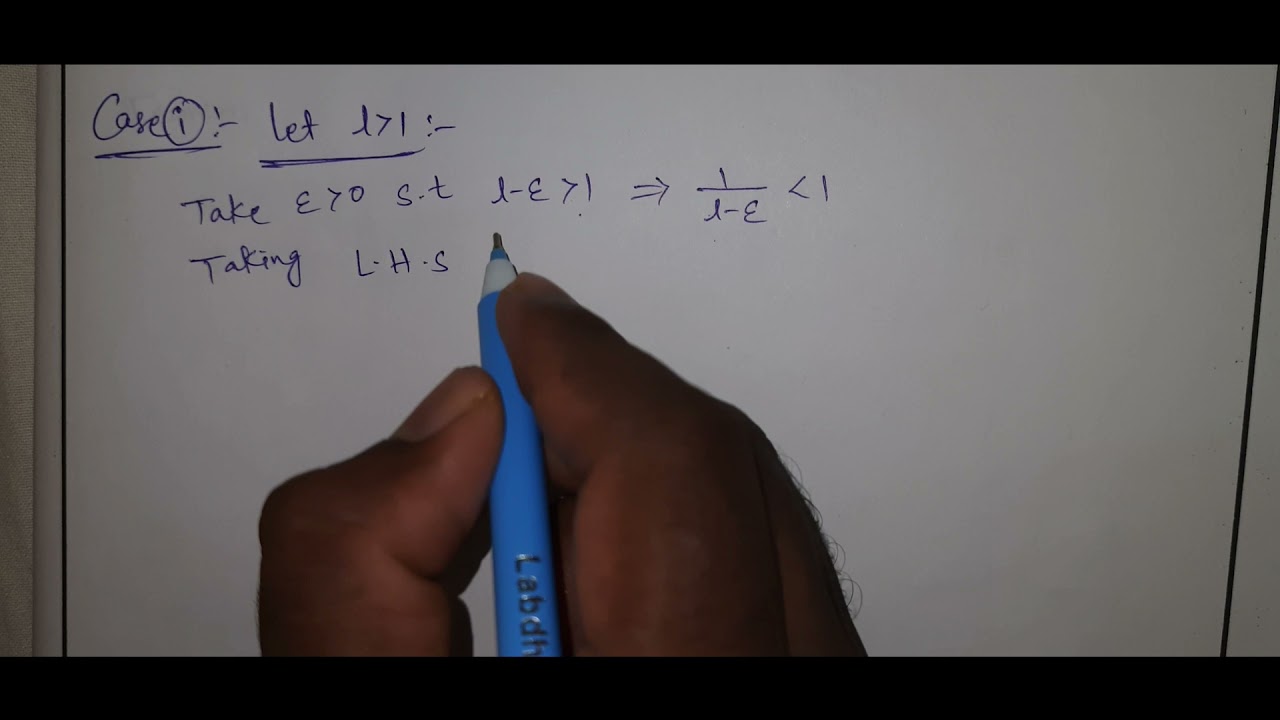 Case (i) :- Let l>1 :-
Take ε>0 s.t l-ε>1 ⇒ 1/(l-ε) < 1
Taking L.H.S
Labdh